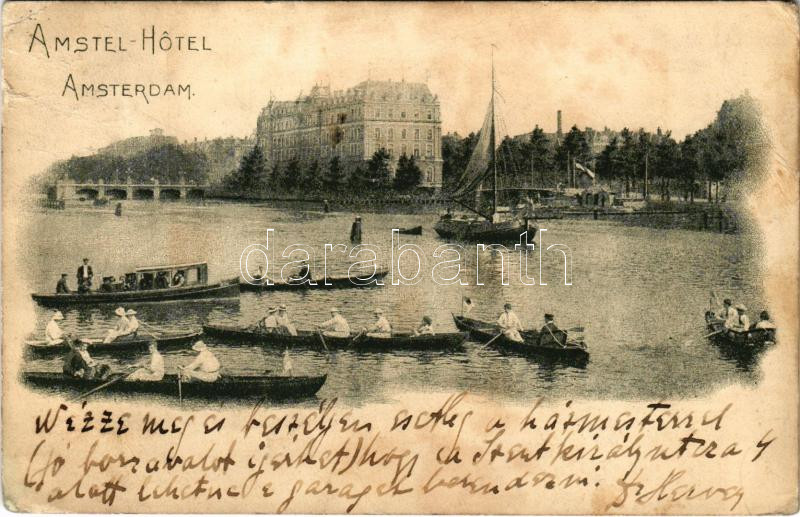 AMSTEL-HÔTEL
AMSTERDAM.
darabanth
Nézze meg es beszéljen esetleg a házmesterrel
(jó borravalot igerhet) hogy a Szentkirályi utcza 4
alatt lehetne e garaget berendezni.